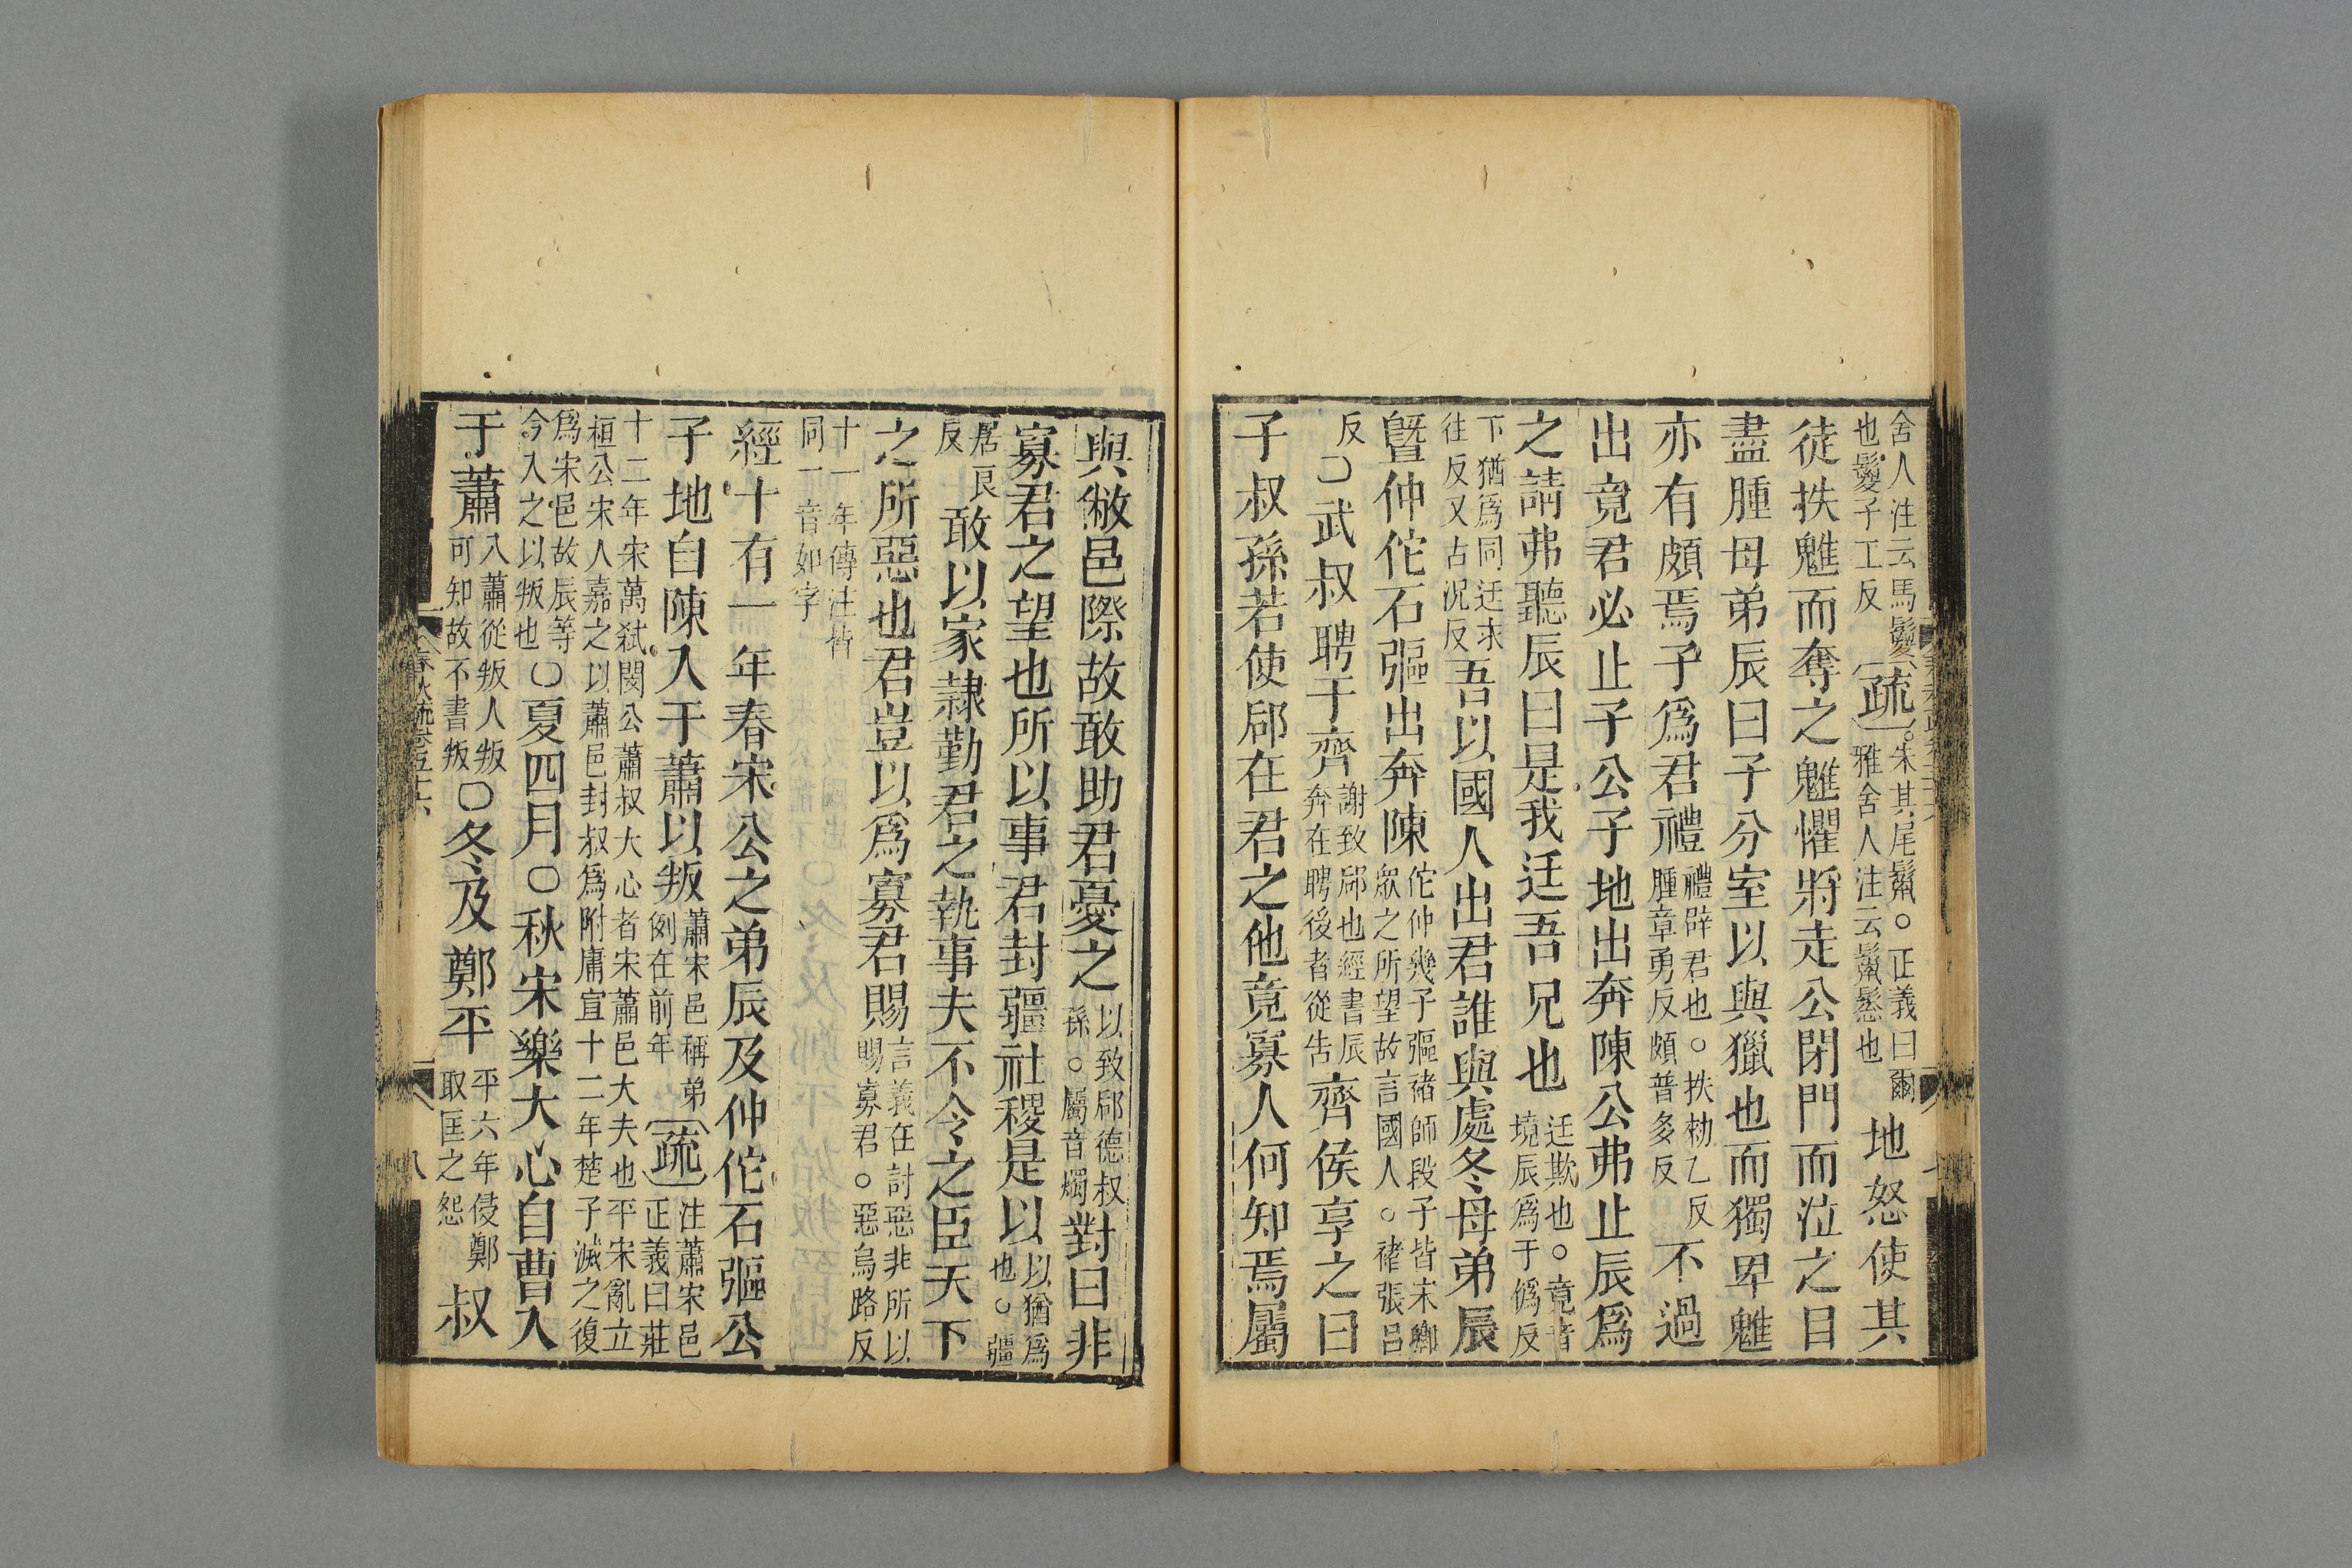 舍人注云馬鬉
也鬉子工反
疏
朱其尾鬛○正義曰爾
雅舍人注云鬛鬉也
地怒使其
徒抶魋而奪之魋懼將走公閉門而泣之目
盡腫母弟辰曰子分室以與獵也而獨卑魋
亦有頗焉子爲君禮
禮辟君也○抶勑乙反
腫章勇反頗普多反
不過
出竟君必止子公子地出奔陳公弗止辰爲
之請弗聽辰曰是我迋吾兄也
迋欺也○竟音
境辰爲于僞反
下猶爲同迋求
往反又古況反
吾以國人出君誰與處冬母弟辰
暨仲佗石彄出奔陳
佗仲幾子彄褚師段子皆宋卿
衆之所望故言國人○褚張呂
反
○武叔聘于齊
謝致郈也經書辰
奔在聘後者從告
齊侯享之曰
子叔孫若使郈在君之他竟寡人何知焉屬
與敝邑際故敢助君憂之
以致郈德叔
孫○屬音燭
對曰非
寡君之望也所以事君封疆社稷是以
以猶爲
也○疆
居良
反
敢以家隷勤君之執事夫不令之臣天下
之所惡也君豈以爲寡君賜
言義在討惡非所以
賜寡君○惡烏路反
十一年傳注皆
同一音如字
經十有一年春宋公之弟辰及仲佗石彄公
子地自陳入于蕭以叛
蕭宋邑稱弟
例在前年
疏
注蕭宋邑
正義曰莊
十二年宋萬弒閔公蕭叔大心者宋蕭邑大夫也平宋亂立
桓公宋人嘉之以蕭邑封叔爲附庸宣十二年楚子滅之復
爲宋邑故辰等
今入之以叛也
○夏四月○秋宋樂大心自曹入
于蕭
入蕭從叛人叛
可知故不書叛
○冬及鄭平
平六年侵鄭
取匡之怨
叔
八